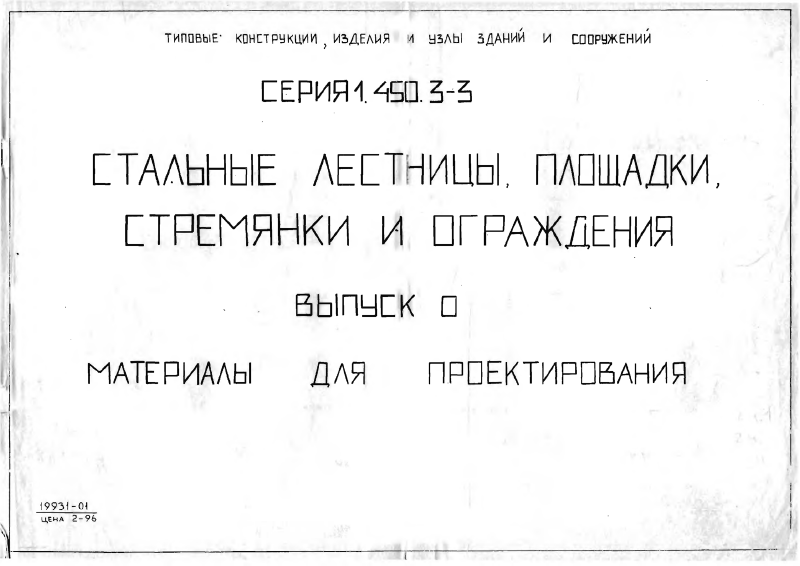 ТИПОВЫЕ КОНСТРУКЦИИ, ИЗДЕЛИЯ И УЗЛЫ ЗДАНИЙ И СООРУЖЕНИЙ
СЕРИЯ 1.450.3-3
СТАЛЬНЫЕ ЛЕСТНИЦЫ, ПЛОЩАДКИ,
СТРЕМЯНКИ И ОГРАЖДЕНИЯ
ВЫПУСК 0
МАТЕРИАЛЫ ДЛЯ ПРОЕКТИРОВАНИЯ
19931-01
ЦЕНА 2-96